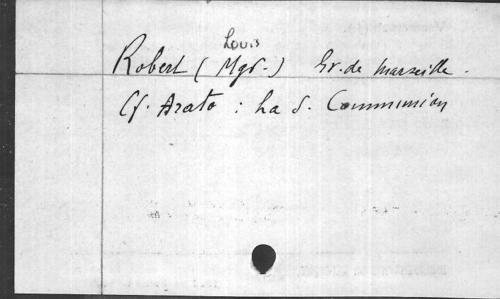 Louis
Robert (Mgr.) Ev. de Marseille.
Cf. Arato : La S. Communion